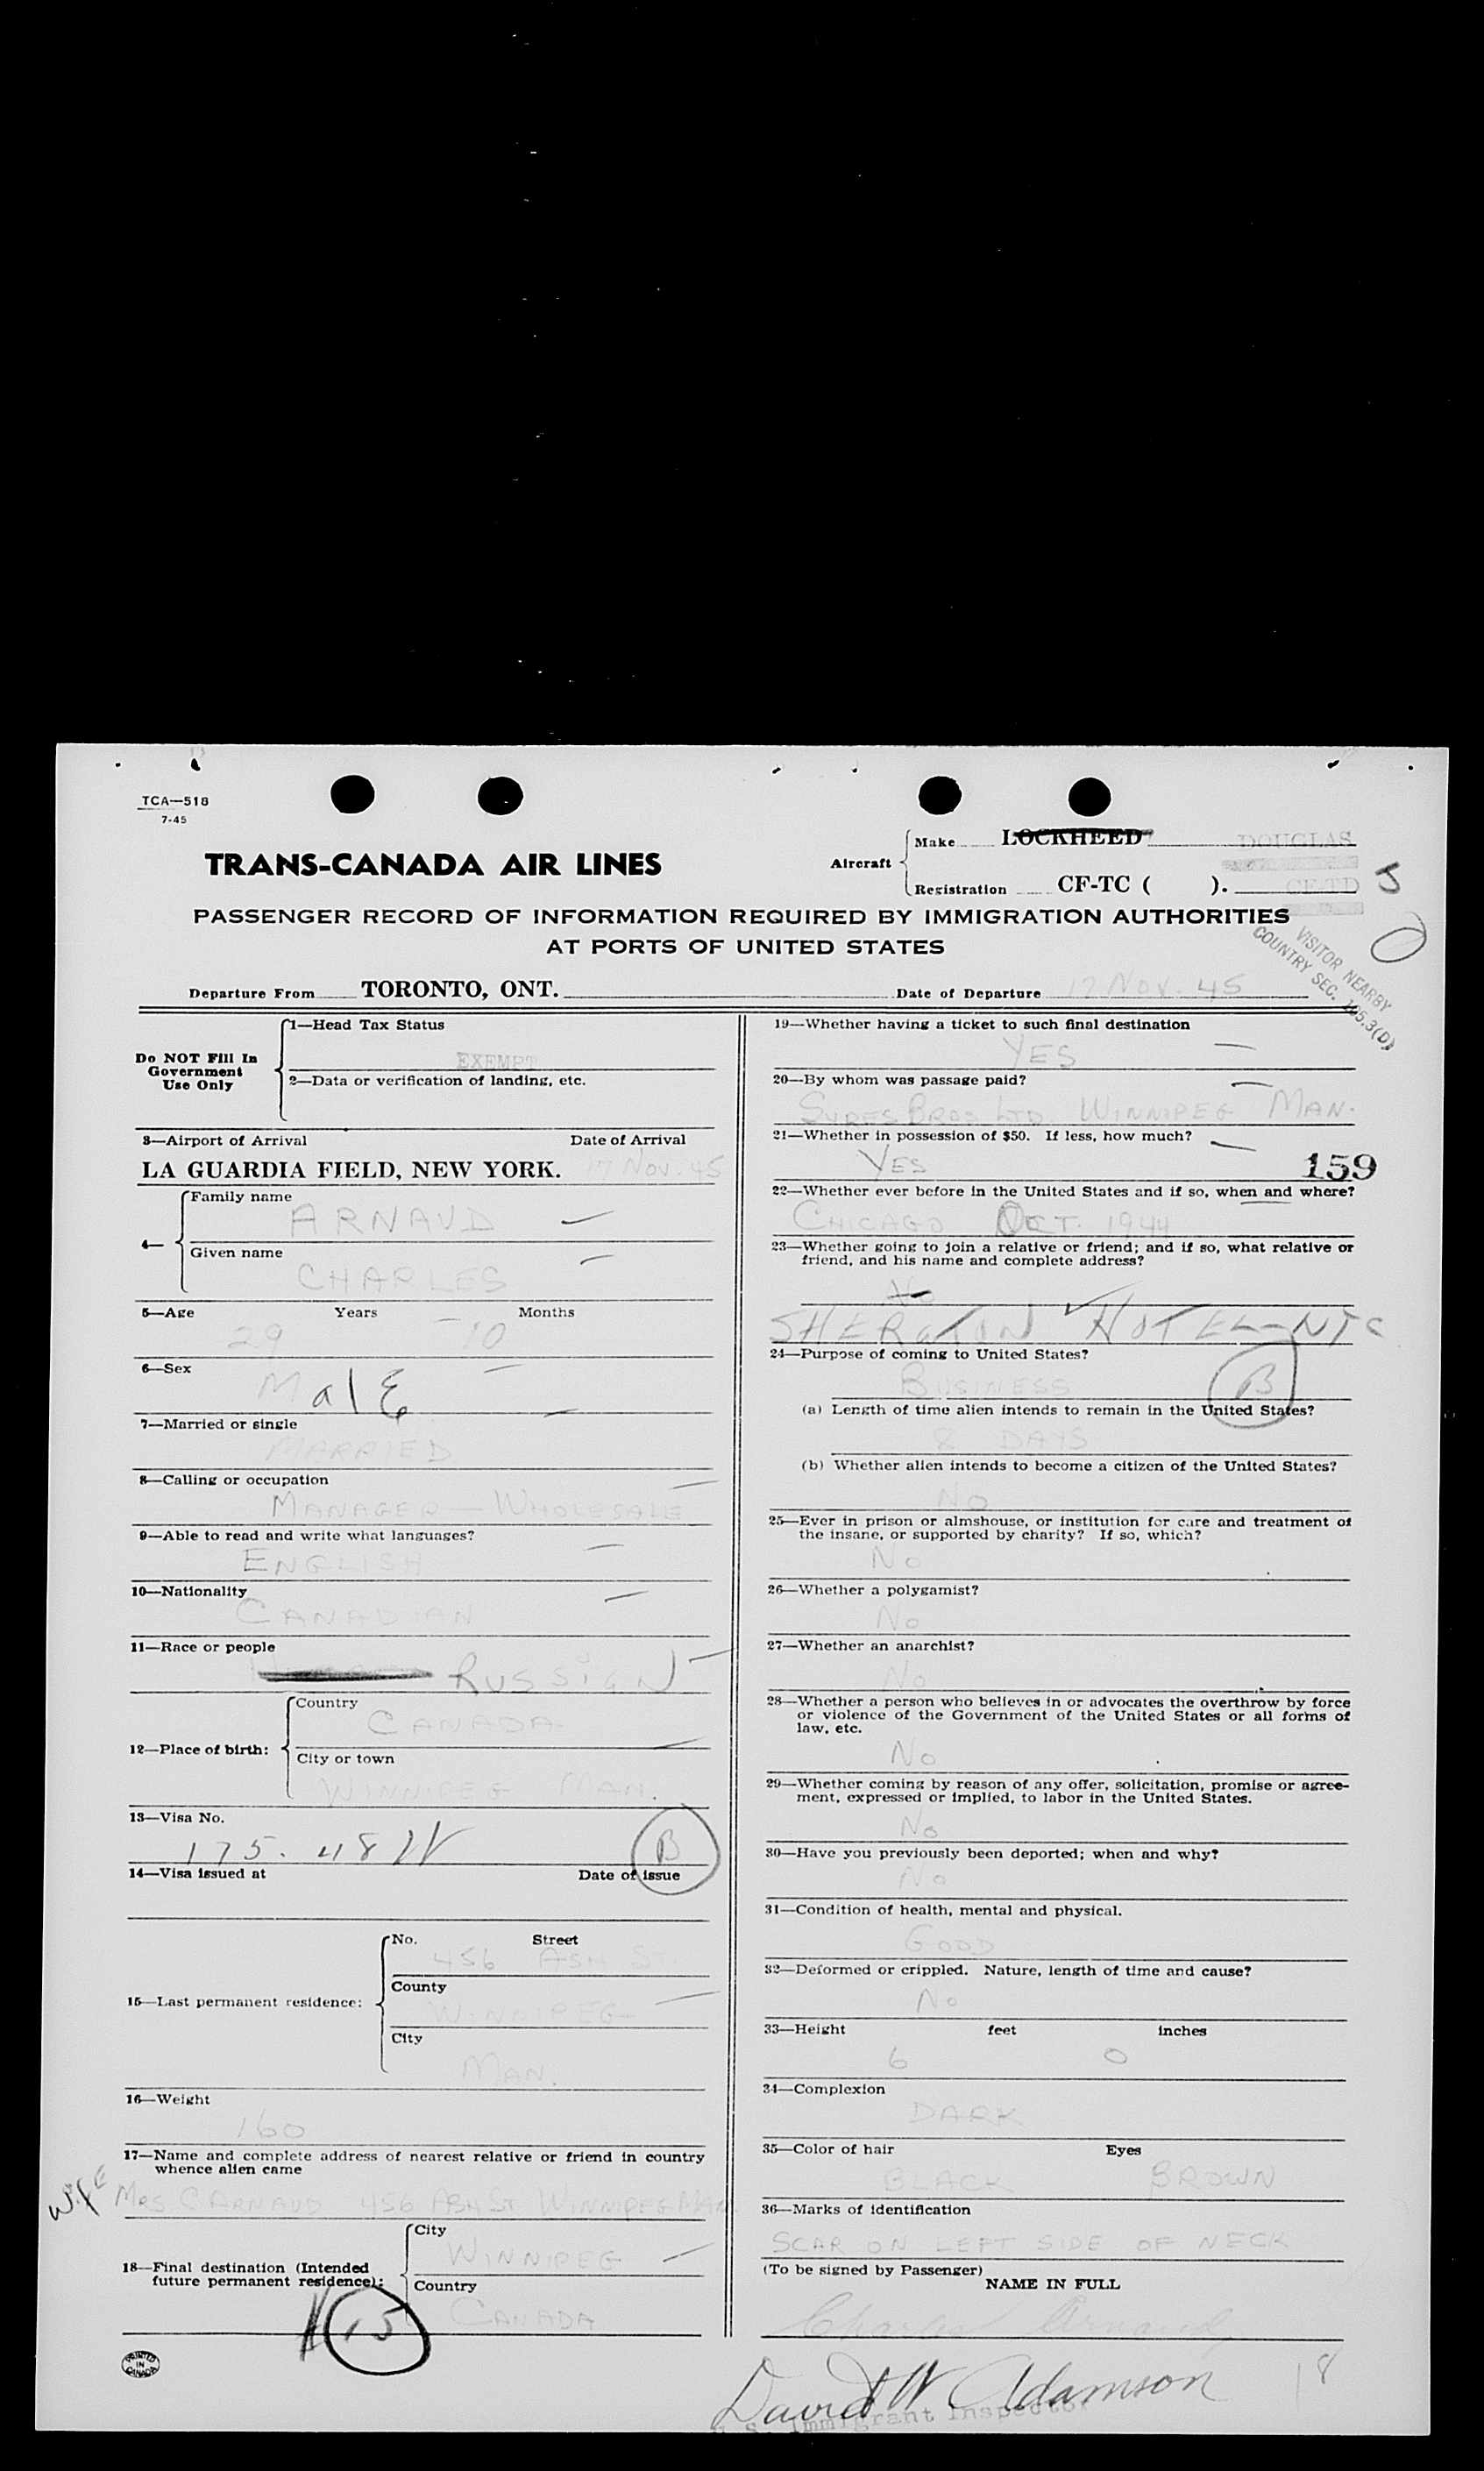 TCA—518
7-45
TRANS-CANADA AIR LINES
Aircraft
Make LOCKHEED DOUGLAS
Registration CF-TC ( ). CF-TD
PASSENGER RECORD OF INFORMATION REQUIRED BY IMMIGRATION AUTHORITIES
AT PORTS OF UNITED STATES
VISITOR NEARBY
COUNTRY SEC. 195.3(D)
Departure From TORONTO, ONT. Date of Departure 17 NOV. 45
Do NOT Fill In
Government
Use Only
1—Head Tax Status
EXEMPT
2—Data or verification of landing, etc.
3—Airport of Arrival Date of Arrival
LA GUARDIA FIELD, NEW YORK. 17 NOV. 45
4—
Family name
ARNAUD
Given name
CHARLES
5—Age Years Months
29 10
6—Sex
MalE
7—Married or single
MARRIED
8—Calling or occupation
MANAGER — WHOLESALE
9—Able to read and write what languages?
ENGLISH
10—Nationality
CANADIAN
11—Race or people
RUSSIAN
12—Place of birth:
Country
CANADA
City or town
WINNIPEG MAN.
13—Visa No.
175. 48 B
14—Visa issued at Date of issue
15—Last permanent residence:
No. Street
456 ASH ST.
County
WINNIPEG
City
MAN.
16—Weight
160
17—Name and complete address of nearest relative or friend in country
whence alien came
WIFE MRS C ARNAUD 456 ASH ST WINNIPEG MAN
18—Final destination (Intended
future permanent residence):
City
WINNIPEG
Country
CANADA
15
PRINTED
IN
CANADA
19—Whether having a ticket to such final destination
YES
20—By whom was passage paid?
BROS LTD WINNIPEG MAN.
21—Whether in possession of $50. If less, how much?
YES 159
22—Whether ever before in the United States and if so, when and where?
CHICAGO OCT. 1944
23—Whether going to join a relative or friend; and if so, what relative or
friend, and his name and complete address?
No
SHERATON HOTEL—NYC
24—Purpose of coming to United States?
BUSINESS B
(a) Length of time alien intends to remain in the United States?
8 DAYS
(b) Whether alien intends to become a citizen of the United States?
No
25—Ever in prison or almshouse, or institution for care and treatment of
the insane, or supported by charity? If so, which?
No
26—Whether a polygamist?
No
27—Whether an anarchist?
No
28—Whether a person who believes in or advocates the overthrow by force
or violence of the Government of the United States or all forms of
law, etc.
No
29—Whether coming by reason of any offer, solicitation, promise or agree-
ment, expressed or implied, to labor in the United States.
No
30—Have you previously been deported; when and why?
No
31—Condition of health, mental and physical.
GOOD
32—Deformed or crippled. Nature, length of time and cause?
No
33—Height feet inches
6 0
34—Complexion
DARK
35—Color of hair Eyes
BLACK BROWN
36—Marks of identification
SCAR ON LEFT SIDE OF NECK
(To be signed by Passenger)
NAME IN FULL
Charles Arnaud
18
David W. Adamson
U.S. Immigrant Inspector